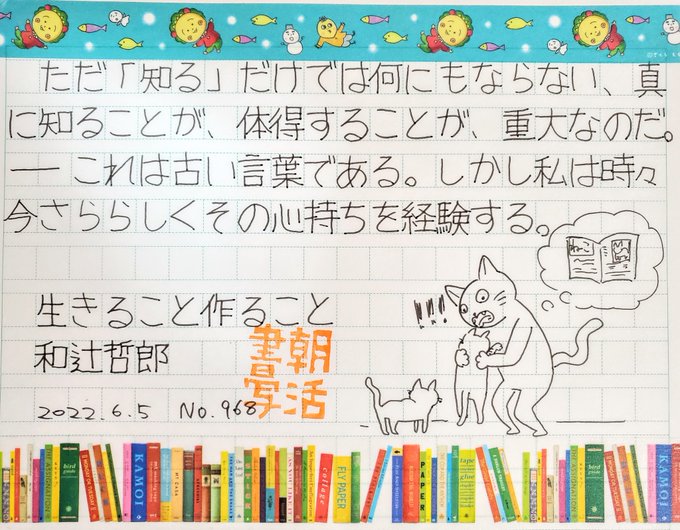 ただ「知る」だけでは何にもならない、真
に知ることが、体得することが、重大なのだ。
── これは古い言葉である。しかし私は時々
今さららしくその心持ちを経験する。
ねこ
!!!
生きること作ること
和辻哲郎
朝活書写
2022.6.5 No.968
bird guide
KAMOI
FLY PAPER
PAPER
tape glue
bird guide
KAMOI